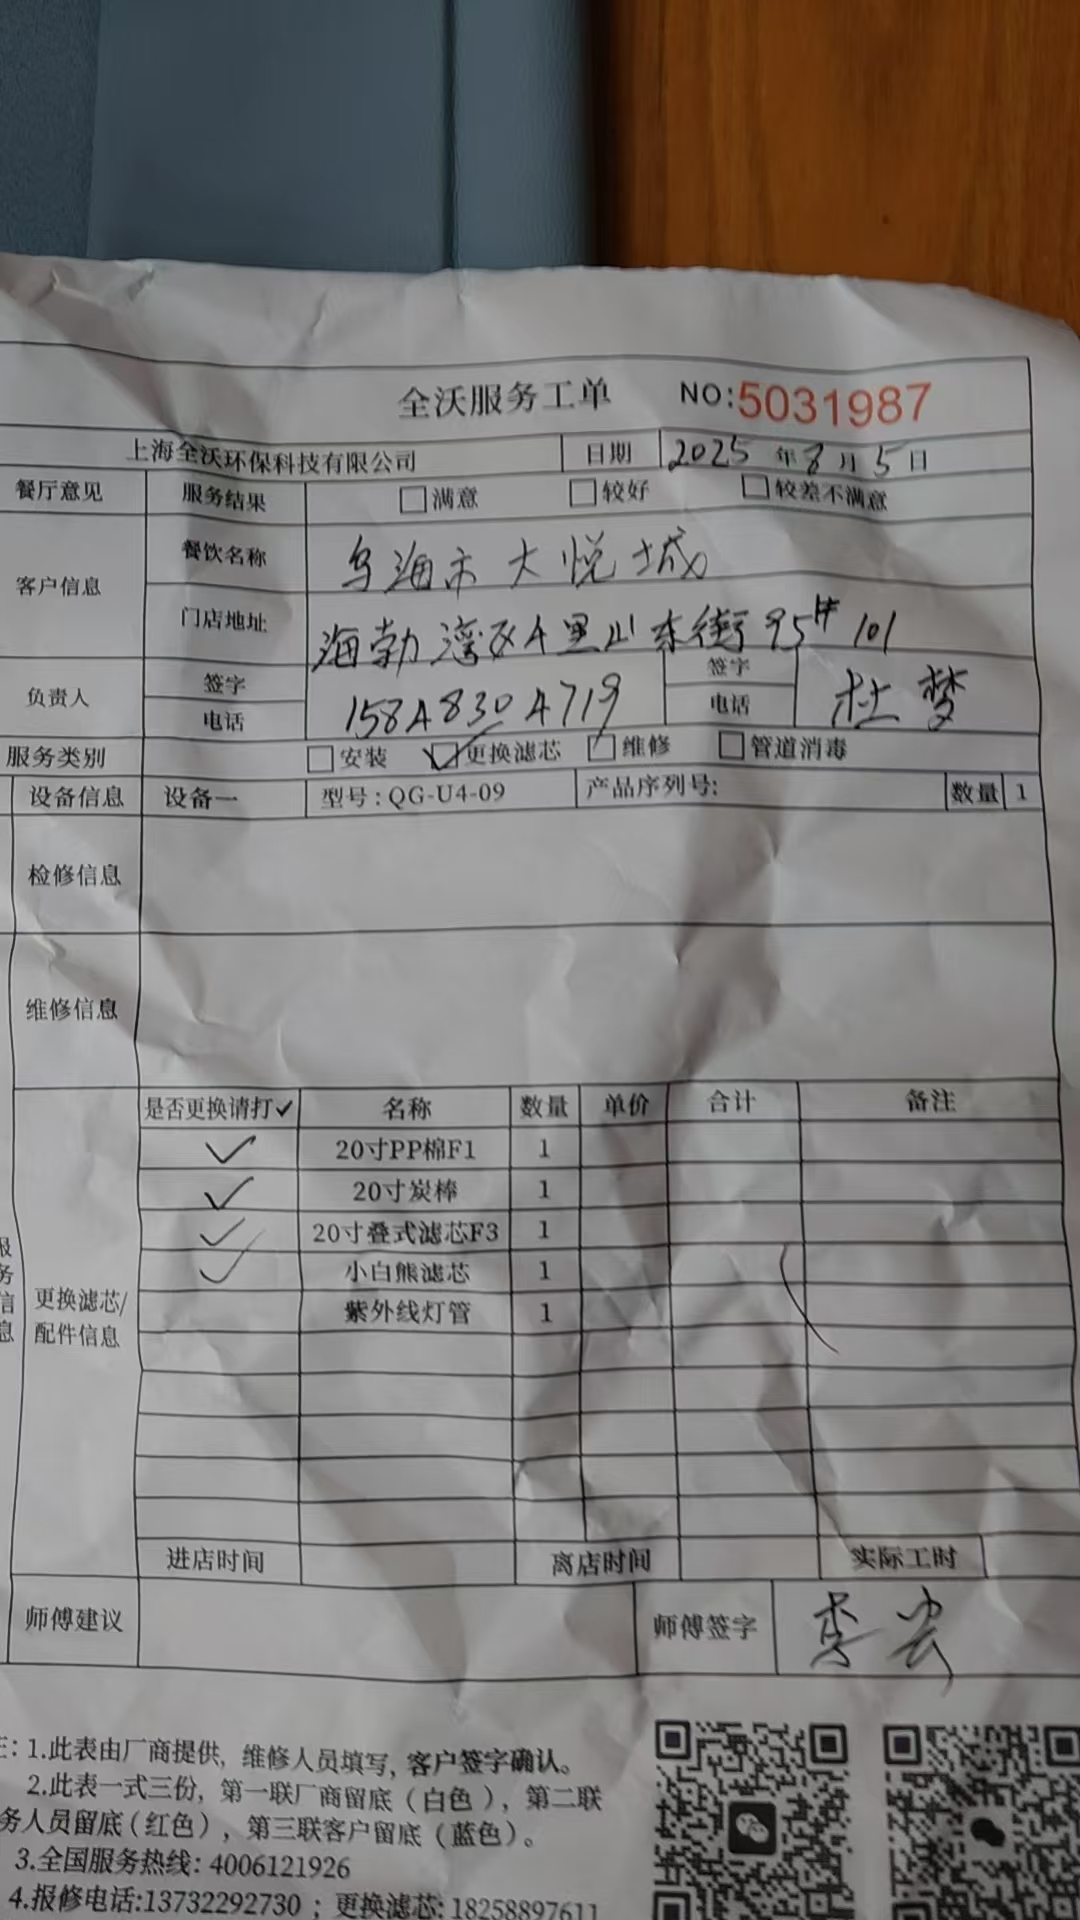 全沃服务工单 NO:5031987
上海全沃环保科技有限公司 日期 2025年8月5日
餐厅意见 服务结果 满意 较好 较差不满意
客户信息 餐饮名称 乌海市大悦城
门店地址 海勃湾区千里山东街95# 101
负责人 签字 签字 杜梦
电话 15848304719 电话
服务类别 安装 更换滤芯 维修 管道消毒
设备信息 设备一 型号:QG-U4-09 产品序列号: 数量 1
检修信息
维修信息
服务信息
更换滤芯/配件信息
是否更换请打✓ 名称 数量 单价 合计 备注
✓ 20寸PP棉F1 1
✓ 20寸炭棒 1
✓ 20寸叠式滤芯F3 1
✓ 小白熊滤芯 1
紫外线灯管 1
进店时间 离店时间 实际工时
师傅建议 师傅签字
注:1.此表由厂商提供,维修人员填写,客户签字确认。
2.此表一式三份,第一联厂商留底(白色),第二联
务人员留底(红色),第三联客户留底(蓝色)。
3.全国服务热线:4006121926
4.报修电话:13732292730;更换滤芯:18258897611